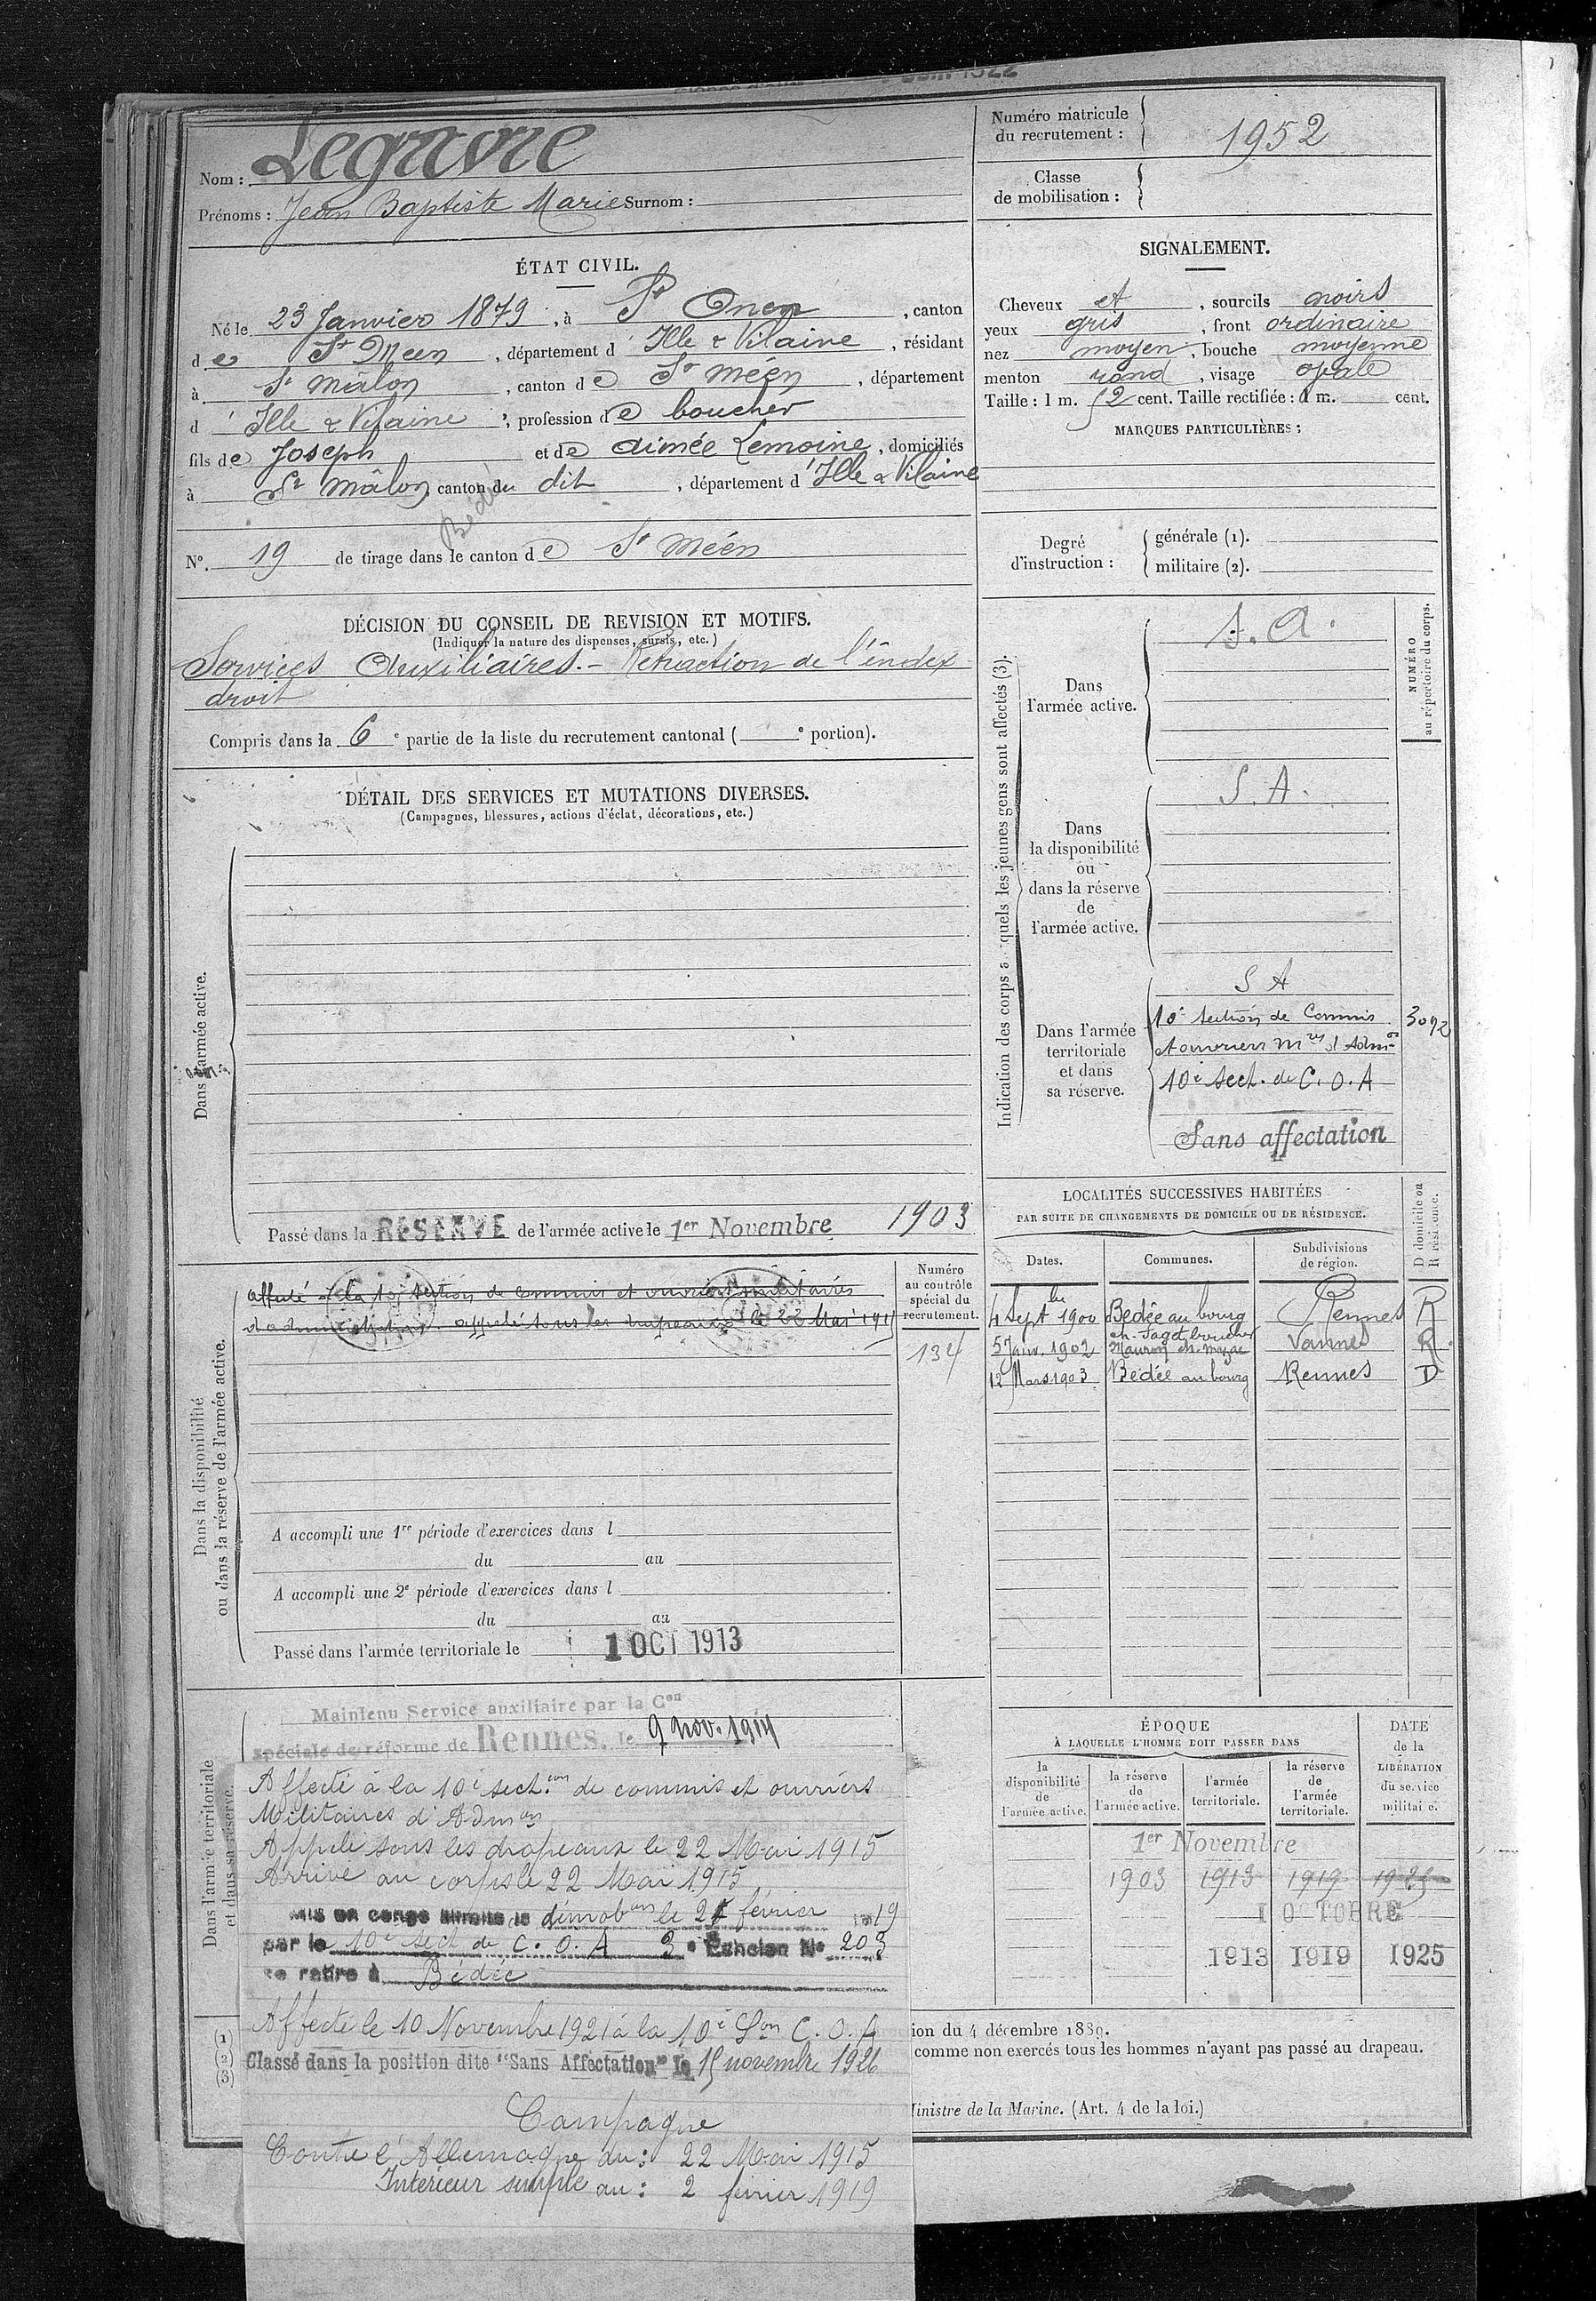 Nom : Legavre
Prénoms : Jean Baptiste Marie Surnom :
Numéro matricule du recrutement : 1952
Classe de mobilisation :
ÉTAT CIVIL.
Né le 23 Janvier 1879, à St Onen, canton
de St Meen, département d'Ille & Vilaine, résidant
à St Mâlon, canton de St Méen, département
d'Ille & Vilaine, profession de boucher
fils de Joseph et de Aimée Lemoine, domiciliés
à St Mâlon, canton du dit, département d'Ille & Vilaine
Bédée
N°. 19 de tirage dans le canton de St Méen
SIGNALEMENT.
Cheveux et, sourcils noirs
yeux gris, front ordinaire
nez moyen, bouche moyenne
menton rond, visage ovale
Taille : 1 m. 52 cent. Taille rectifiée : 1 m. cent.
MARQUES PARTICULIÈRES :
Degré d'instruction : générale (1).
militaire (2).
DÉCISION DU CONSEIL DE REVISION ET MOTIFS.
(Indiquer la nature des dispenses, sursis, etc.)
Services Auxiliaires. - Rétraction de l'index
droit
Compris dans la 6e partie de la liste du recrutement cantonal ( e portion).
DÉTAIL DES SERVICES ET MUTATIONS DIVERSES.
(Campagnes, blessures, actions d'éclat, décorations, etc.)
Dans l'armée active.
Passé dans la RÉSERVE de l'armée active le 1er Novembre 1903
Indication des corps auxquels les jeunes gens sont affectés (3).
NUMÉRO au répertoire du corps.
Dans l'armée active.
S. A.
Dans la disponibilité ou dans la réserve de l'armée active.
S. A.
Dans l'armée territoriale et dans sa réserve.
S A
10e Section de Commis
et ouvriers mres d'Admon
3092
10e Sect. de C. O. A
Sans affectation
LOCALITÉS SUCCESSIVES HABITÉES
PAR SUITE DE CHANGEMENTS DE DOMICILE OU DE RÉSIDENCE.
Dates. Communes. Subdivisions de région. D domicile ou R résidence.
4 Septbre 1900 Bédée au bourg Rennes R
ch. Saget boucher
5 Janv. 1902 Mauron Vannes R.
12 Mars 1903 Bédée au bourg Rennes D
Dans la disponibilité ou dans la réserve de l'armée active.
Numéro au contrôle spécial du recrutement.
134
Affecté à la 10e Section de commis et ouvriers militaires
d'administration. appelé sous les drapeaux le 22 Mai 1915
A accompli une 1re période d'exercices dans l
du au
A accompli une 2e période d'exercices dans l
du au
Passé dans l'armée territoriale le 1 OCT 1913
Dans l'armée territoriale et dans sa réserve.
Maintenu Service auxiliaire par la Con
spéciale de réforme de Rennes, le 9 nov. 1914
Affecté à la 10e secton de commis et ouvriers
Militaires d'Admon
Appelé sous les drapeaux le 22 Mai 1915
Arrivé au corps le 22 Mai 1915
Mis en congé illimité de démobon le février 1919
par le 10e Sect de C. O. A 3e Echelon No 203
se retire à Bédée
Affecté le 10 Novembre 1921 à la 10e Son C. O. A
Classé dans la position dite "Sans Affectation" le 15 novembre 1926
Campagne
Contre l'Allemagne du : 22 Mai 1915
Intérieur simple au : 2 février 1919
ÉPOQUE
À LAQUELLE L'HOMME DOIT PASSER DANS
DATE de la LIBÉRATION du service militaire.
la disponibilité de l'armée active. la réserve de l'armée active. l'armée territoriale. la réserve de l'armée territoriale.
1er Novembre
1903 1913 1919 1925
1 OCTOBRE
1913 1919 1925
(1)
(2)
(3)
ion du 4 décembre 1889.
comme non exercés tous les hommes n'ayant pas passé au drapeau.
Ministre de la Marine. (Art. 4 de la loi.)